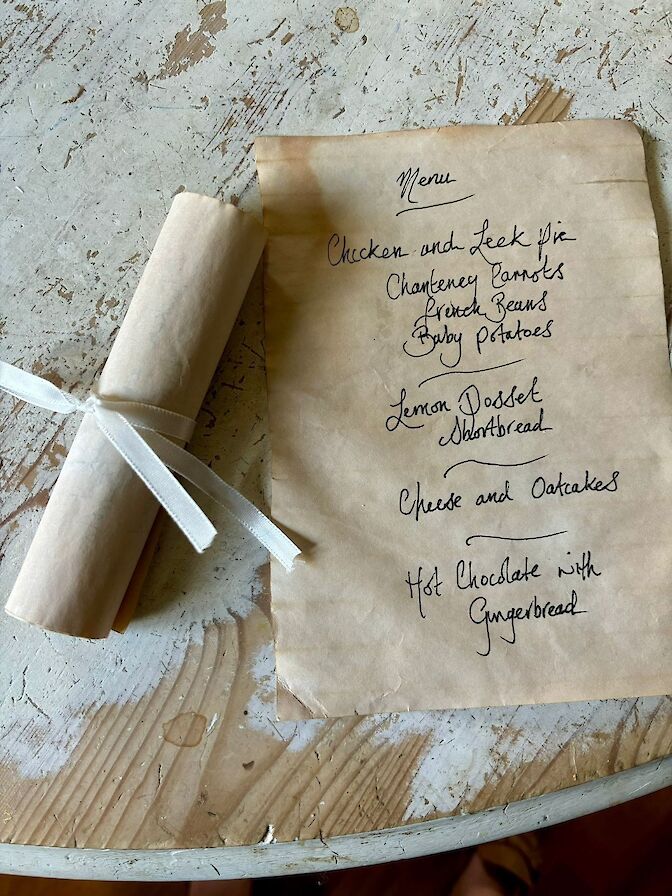 Menu
Chicken and Leek Pie
Chanteney Carrots
French Beans
Baby potatoes
Lemon Posset
Shortbread
Cheese and Oatcakes
Hot Chocolate with
Gingerbread